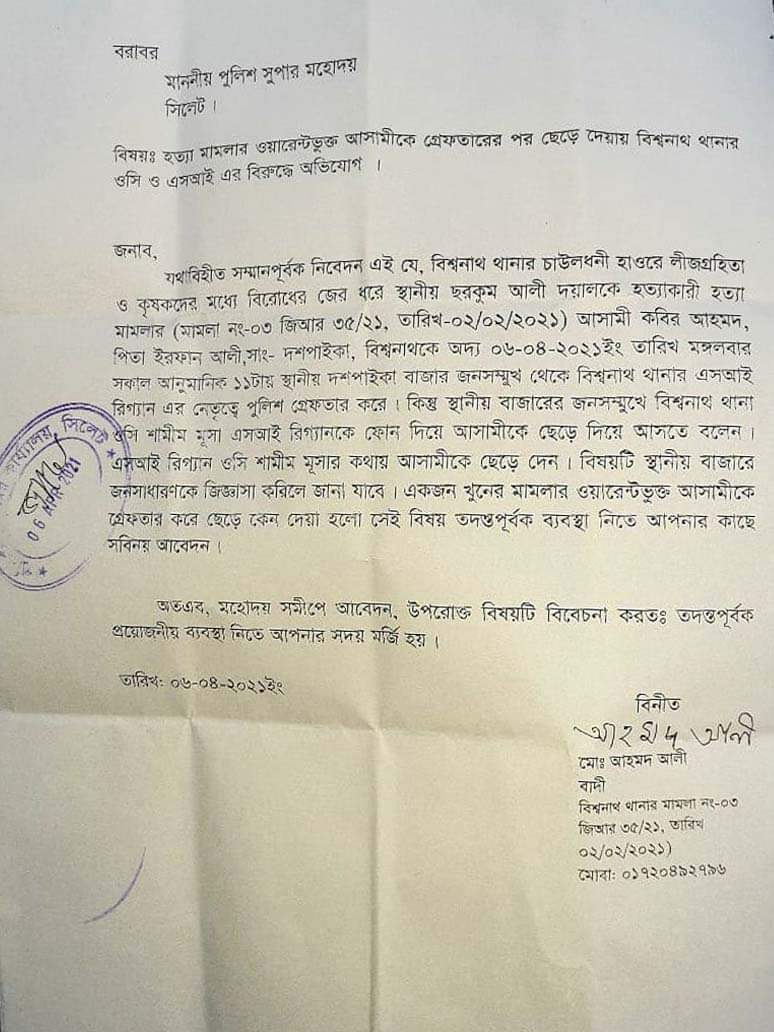 বরাবর
মাননীয় পুলিশ সুপার মহোদয়
সিলেট ।
বিষয়ঃ হত্যা মামলার ওয়ারেন্টভুক্ত আসামীকে গ্রেফতারের পর ছেড়ে দেয়ায় বিশ্বনাথ থানার
ওসি ও এসআই এর বিরুদ্ধে অভিযোগ ।
জনাব,
যথাবিহীত সম্মানপূর্বক নিবেদন এই যে, বিশ্বনাথ থানার চাউলধনী হাওরে লীজগ্রহিতা
ও কৃষকদের মধ্যে বিরোধের জের ধরে স্থানীয় ছরকুম আলী দয়ালকে হত্যাকারী হত্যা
মামলার (মামলা নং-০৩ জিআর ৩৫/২১, তারিখ-০২/০২/২০২১) আসামী কবির আহমদ,
পিতা ইরফান আলী,সাং- দশপাইকা, বিশ্বনাথকে অদ্য ০৬-০৪-২০২১ইং তারিখ মঙ্গলবার
সকাল আনুমানিক ১১টায় স্থানীয় দশপাইকা বাজার জনসম্মুখ থেকে বিশ্বনাথ থানার এসআই
রিগ্যান এর নেতৃত্বে পুলিশ গ্রেফতার করে । কিন্তু স্থানীয় বাজারের জনসম্মুখে বিশ্বনাথ থানা
ওসি শামীম মূসা এসআই রিগ্যানকে ফোন দিয়ে আসামীকে ছেড়ে দিয়ে আসতে বলেন ।
এসআই রিগ্যান ওসি শামীম মূসার কথায় আসামীকে ছেড়ে দেন । বিষয়টি স্থানীয় বাজারে
জনসাধারণকে জিজ্ঞাসা করিলে জানা যাবে । একজন খুনের মামলার ওয়ারেন্টভুক্ত আসামীকে
গ্রেফতার করে ছেড়ে কেন দেয়া হলো সেই বিষয় তদন্তপূর্বক ব্যবস্থা নিতে আপনার কাছে
সবিনয় আবেদন ।
কার্যালয়, সিলেট
06 APR 2021
অতএব, মহোদয় সমীপে আবেদন, উপরোক্ত বিষয়টি বিবেচনা করতঃ তদন্তপূর্বক
প্রয়োজনীয় ব্যবস্থা নিতে আপনার সদয় মর্জি হয় ।
তারিখ: ০৬-০৪-২০২১ইং
বিনীত
আহমদ আলী
মোঃ আহমদ আলী
বাদী
বিশ্বনাথ থানার মামলা নং-০৩
জিআর ৩৫/২১, তারিখ
০২/০২/২০২১)
মোবা: ০১৭২০৪৯২৭৯৬